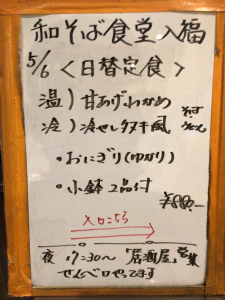 和そば食堂 入福
5/6 <日替定食>
温) 甘あげわかめ
冷) 冷やしタヌキ風
そば
うどん
・おにぎり(ゆかり)
・小鉢2品付
¥880.-
入口こちら
夜 17:30〜 「居酒屋」営業
せんべろやってます